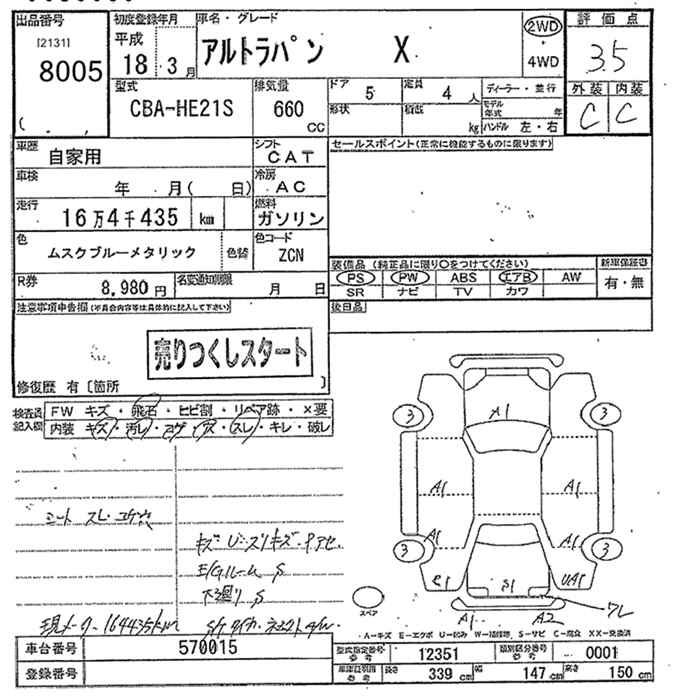 出品番号 初度登録年月 車名・グレード 評価点
[2131] 平成 アルトラパン X 2WD 3.5
8005 18 . 3 月 4WD
型式 排気量 ドア 5 定員 4 人 ディーラー・並行 外装 内装
CBA-HE21S 660 CC 形状 積載 kg モデル年式 年 C C
ハンドル 左・右
車歴 自家用 シフト CAT セールスポイント(正常に機能するものに限ります)
車検 年 月( 日) 冷房 AC
走行 16万4千435 km 燃料 ガソリン
色 ムスクブルーメタリック 色替 色コード ZCN
装備品 (純正品に限り○をつけてください) 新車保証書
R券 8,980円 名変通知期限 月 日 PS PW ABS エアB AW 有・無
SR ナビ TV カワ
注意事項申告欄(不具合内容等は具体的に記入して下さい) 後日品
売りつくしスタート
修復歴 有〔箇所 〕
検査員記入欄 FW キズ・飛石・ヒビ割・リペア跡・×要
内装・キズ・汚レ・コゲ・穴・スレ・キレ・破レ
A1
3 3
A1 A1
A1 A1
シート スレ・コゲ穴
3 3
キズ U・スリキズ・
E/Gルーム S
下廻り S
C1 S1 UA1
ワレ
スペア
A1 A2
現メーター 164435km
A-キズ E-エクボ U-凹み W-補修跡 S-サビ C-腐食 XX-交換済
車台番号 570015 型式指定番号 参考 12351 類別区分番号 参考 0001
登録番号 車庫証明用 参考 長さ 339 cm 幅 147 cm 高さ 150 cm